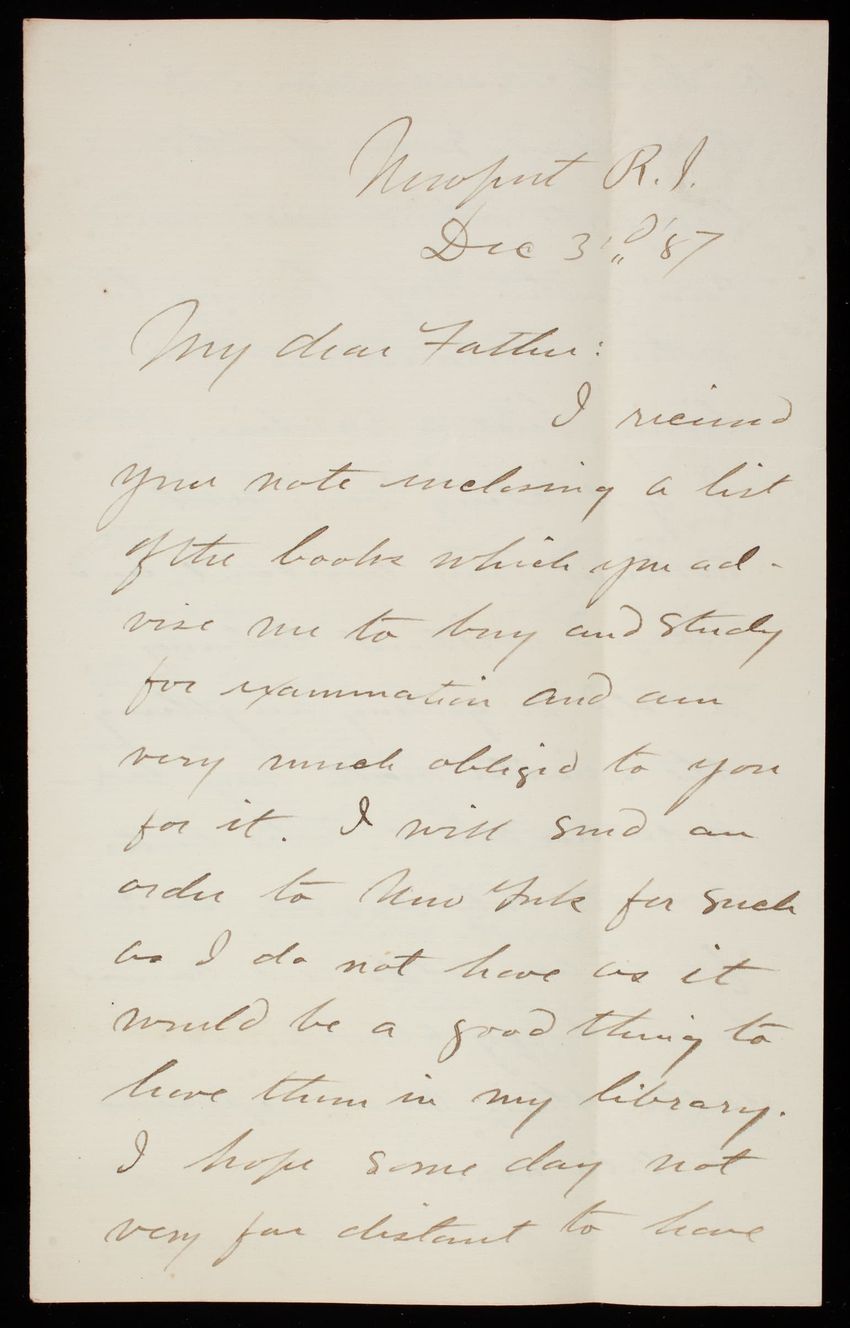 Newport R.I.
Dec 3rd '87
My dear Father:
I received
your note inclosing a list
of the books which you ad-
vise me to buy and study
for examination and am
very much obliged to you
for it. I will send an
order to New York for such
as I do not have as it
would be a good thing to
have them in my library.
I hope some day not
very far distant to have